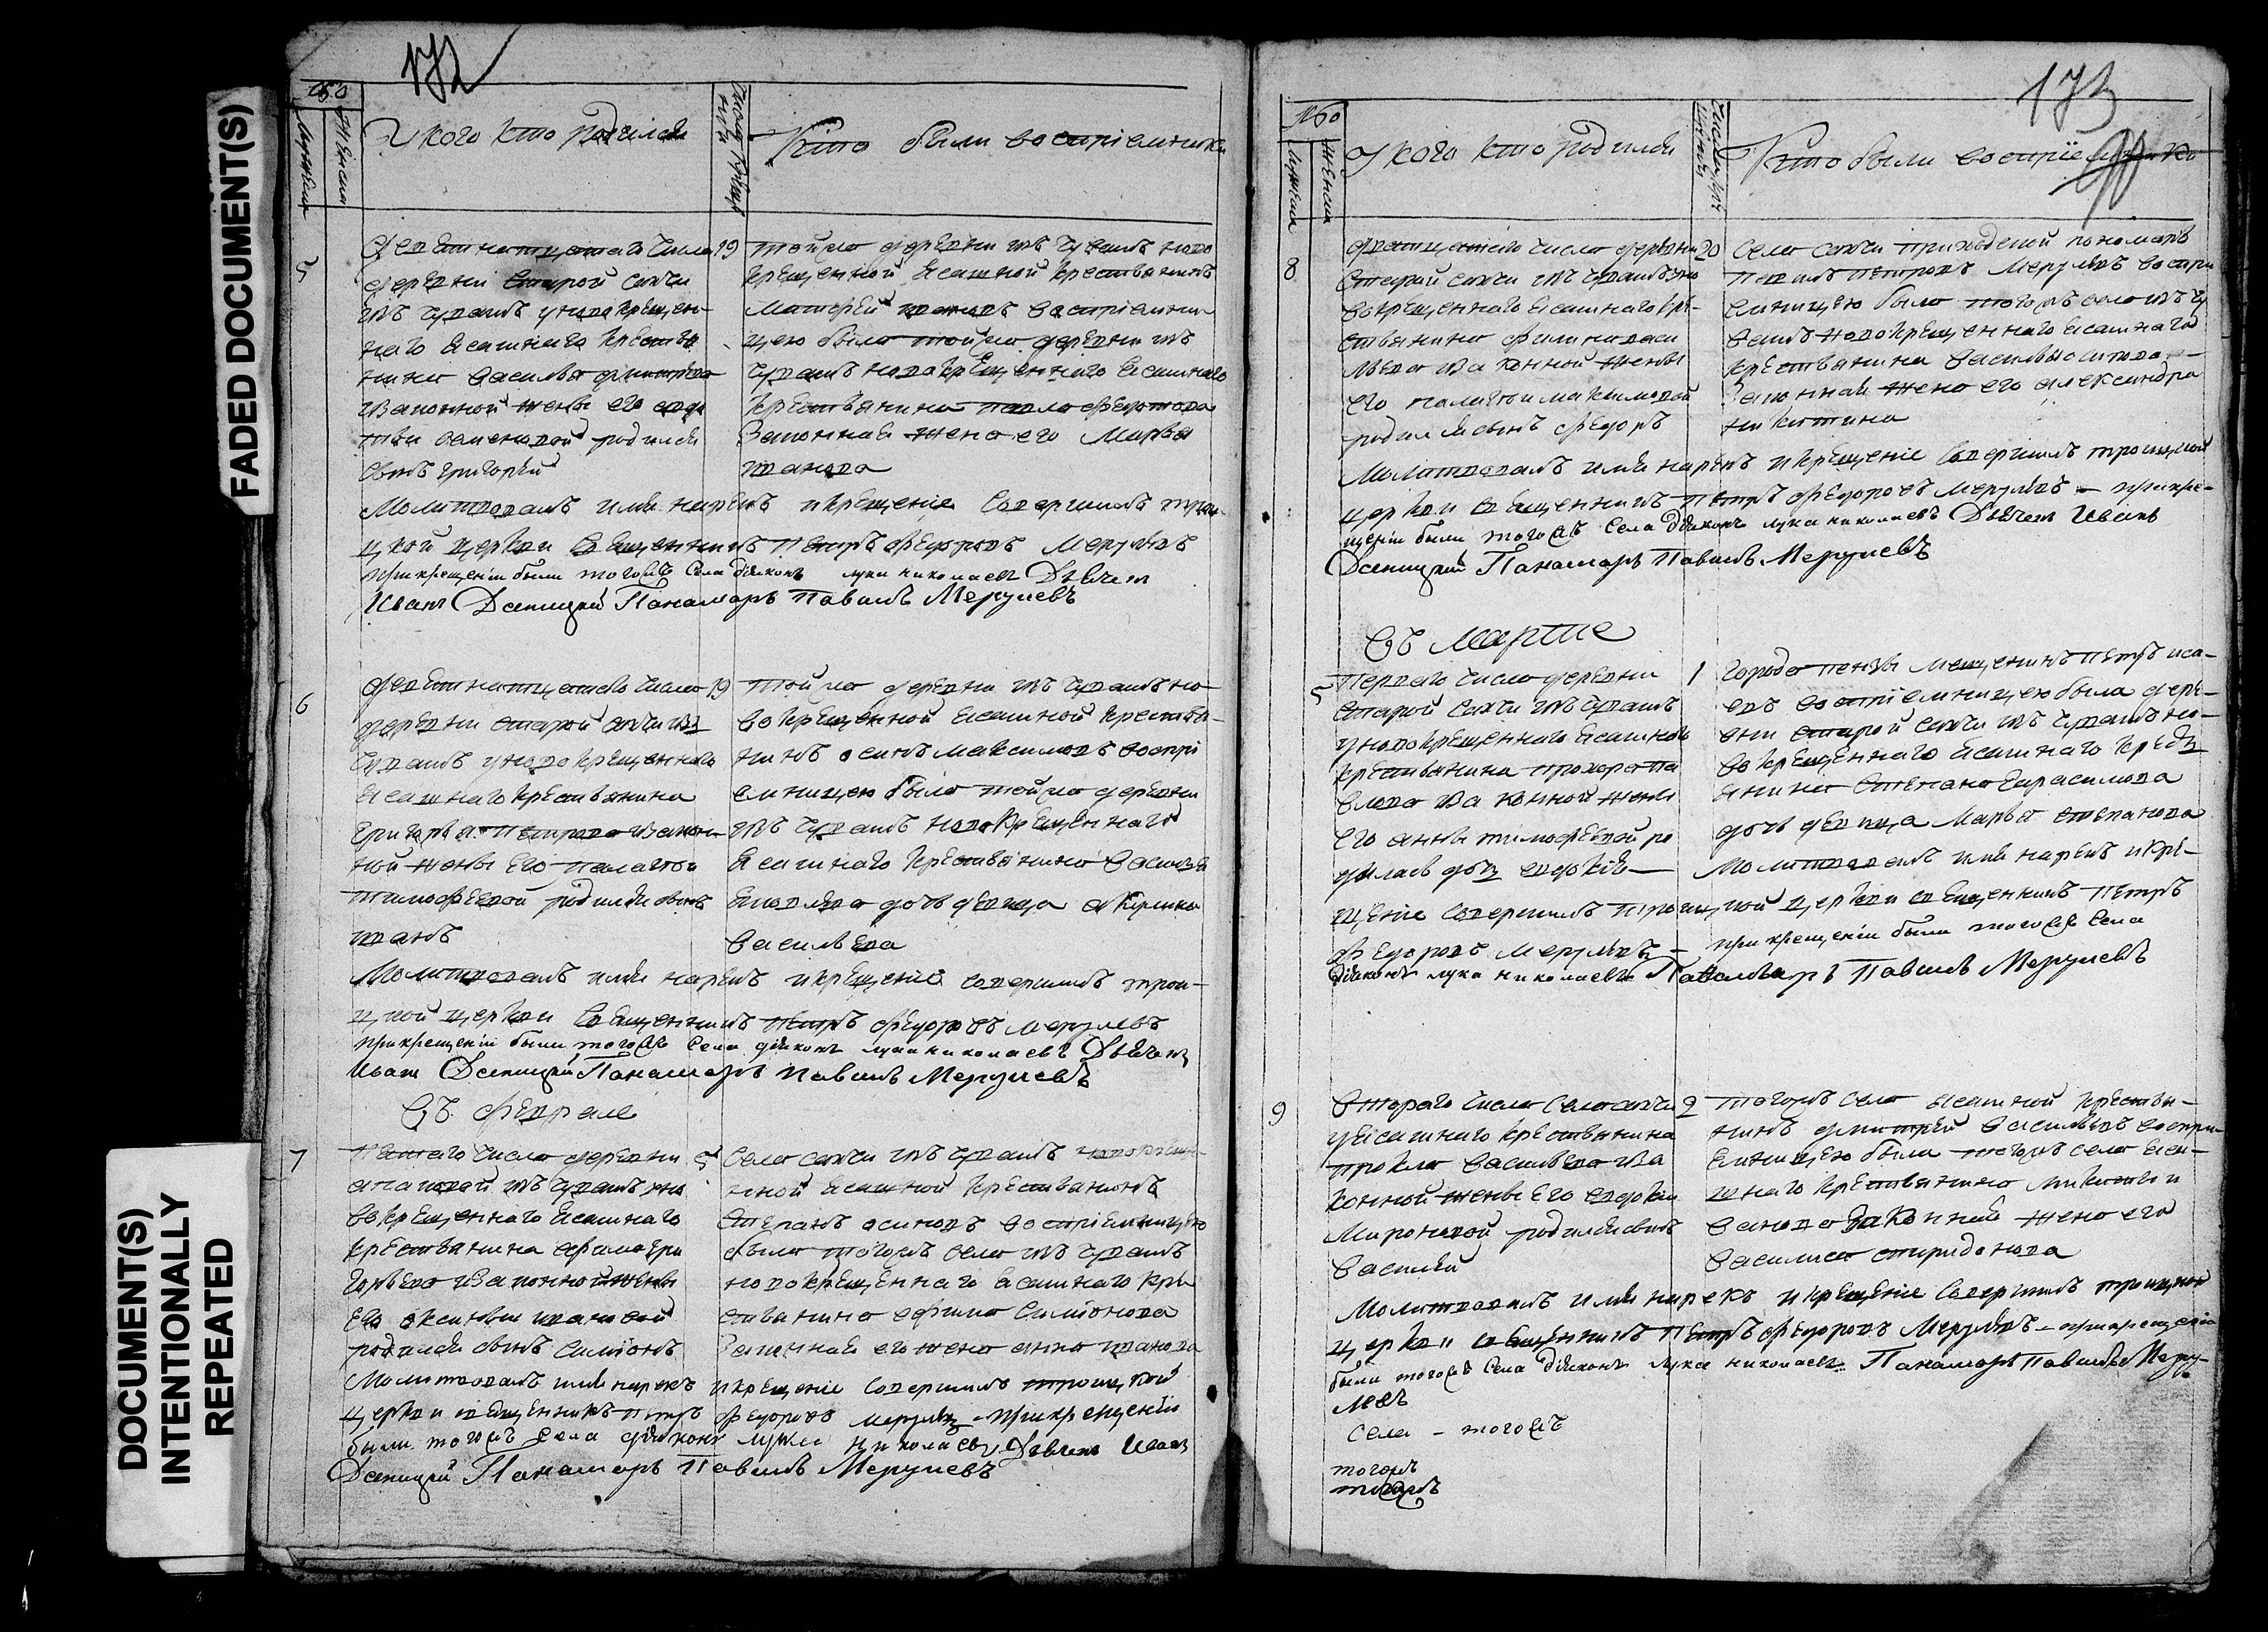 FADED DOCUMENT(S)
DOCUMENT(S)
INTENTIONALLY
REPEATED
172
Мужеска
Женска
У кого кто родился
Кто были восприемники
5
девятнатцатаго числа 19
деревни старой сахчи
изъ чувашъ у новокрещен-
наго ясашнаго крестья
нина василья дмитриева
изаконной жены его
семеновой родился
сынъ григорей
тойжа деревни изъ чувашъ ново
крещенной ясашной крестьянинъ
матфей ивановъ восприемни
цею была тойжа деревни изъ
чувашъ новокрещеннаго ясашнаго
крестьянина павла федотова
законная жена его Марья
иванова
Молитвовалъ имя нарекъ икрещение совершилъ трои
цкой церкви священникъ Петръ федоровъ Мерулевъ
прикрещении были тогожъ села диаконъ лука николаевъ Дьячекъ
Иванъ Панамарь Павилъ Мерулевъ
6
девятнатцатаго числа 19
деревни старой сахчи изъ
чувашъ уновокрещеннаго
ясашнаго крестьянина
григорья петрова изакон
ной жены его палагеи
тимофеевой родился сынъ
иванъ
тойжа деревни изъ чувашъ но
вокрещенной ясашной крестья-
нинъ осипъ максимовъ воспри
емницею была тойжа деревни
изъ чувашъ новокрещеннаго
ясашнаго крестьянина василья
яковлева дочь девица акулина
васильева
Молитвовалъ имя нарекъ икрещение совершилъ трои-
цкой церкви священникъ петръ федоровъ мерулевъ
прикрещении были тогожъ села диаконъ лука николаевъ Дьячекъ
Иванъ Панамарь павилъ Мерулевъ
Въ феврале
7
пятаго числа деревни 5
изъ чувашъ уно
вокрещеннаго ясашнаго
крестьянина ефима гри
горьева изаконной жены
его аксиньи ивановой
родился сынъ симионъ
села сахчи изъ чувашъ новокрещен-
ной ясашной крестьянинъ
степанъ осиповъ восприемницею
была тогожъ села изъ чувашъ
новокрещеннаго ясашнаго кре
стьянина ефима симионова
законная его жена анна иванова
Молитвовалъ имя нарекъ икрещение совершилъ троицкой
церкви священникъ петръ федоровъ мерулевъ прикрещении
были тогожъ села диаконъ лука николаевъ Дьячекъ Иванъ
Панамарь Павилъ Мерулевъ
173
90
Мужеска
Женска
У кого кто родился
Кто были восприемники
8
дватцатаго числа деревни 20
старой сахчи изъ чувашъ уно
вокрещеннаго ясашнаго кре-
стьянина филипа васи
льева изаконной жены
его палагеи максимовой
родился сынъ федоръ
села сахчи приходской пономарь
павилъ петровъ Мерулевъ воспри
емницею была тогожъ села изъ чу
вашъ новокрещеннаго ясашнаго
крестьянина василья
законная жена его александра
никитина
Молитвовалъ имя нарекъ икрещение совершилъ троицкой
церкви священникъ петръ федоровъ мерулевъ - прикре-
щении были тогожъ села диаконъ лука николаевъ Дьячекъ Иванъ
Панамарь Павилъ Мерулевъ
Въ марте
5
Перваго числа деревни 1
старой сахчи изъ чувашъ
уновокрещеннаго ясашнаго
крестьянина прохора па
влова изаконной жены
его анны тимофеевой ро
дилась дочь евдокия
города пензы мещенинъ петръ иса-
евъ восприемницею была дере-
вни старой сахчи изъ чувашъ но-
вокрещеннаго ясашнаго крестья
янина степана гарасимова
дочь девица Марья степанова
Молитвовалъ имя нарекъ икре-
щение совершилъ троицкой церкви священникъ петръ
федоровъ мерулевъ - прикрещении были тогожъ села
диаконъ лука николаевъ Панамарь Павилъ Мерулевъ
9
втораго числа села сахчи 2
уясашнаго крестьянина
прокла васильева иза
конной жены его евдокии
Мироновой родился сынъ
василей
тогожъ села ясашной крестья-
нинъ дмитрей васильевъ воспри
емницею была тогожъ села яса-
шнаго крестьянина никиты и
ванова законная жена его
василиса спиридонова
Молитвовалъ имя нарекъ икрещение совершилъ троицкой
церкви священникъ петръ федоровъ Мерулевъ - прикрещении
были тогожъ села диаконъ лука николаевъ Панамарь Павилъ Меру-
левъ
села - тогожъ
тогожъ
тогожъ